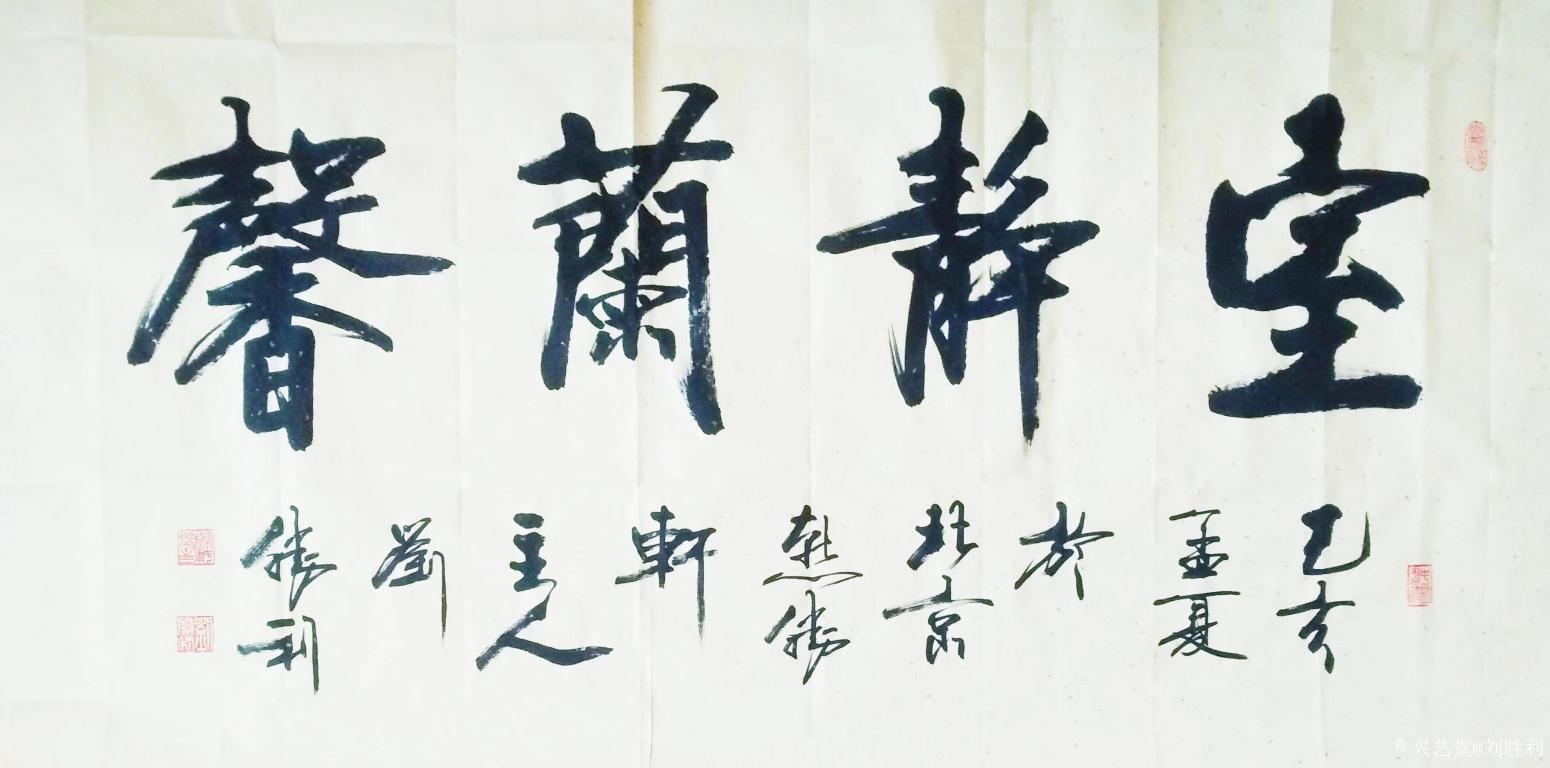 室静蘭馨
己亥
孟夏
於
北京
勝
軒
主人
劉
勝利
兴艺堂@刘胜利